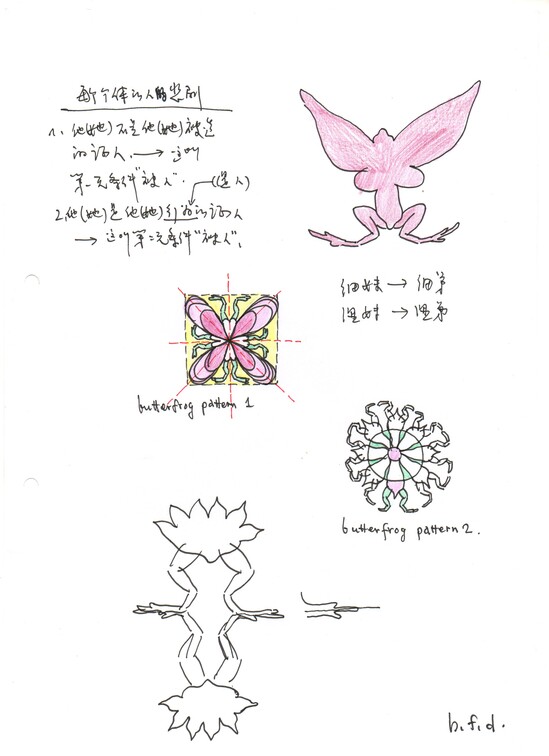 个体的人的悲剧
1. 他(她)不是他(她)被造
的证人. → 这叫
第一无条件"被人".
2.他(她)是他(她)行为的证人
→ 这叫第二无条件"被人".
细妹 → 细弟
妹 → 弟
butterfrog pattern 1
butterfrog pattern 2.
b.f.d.